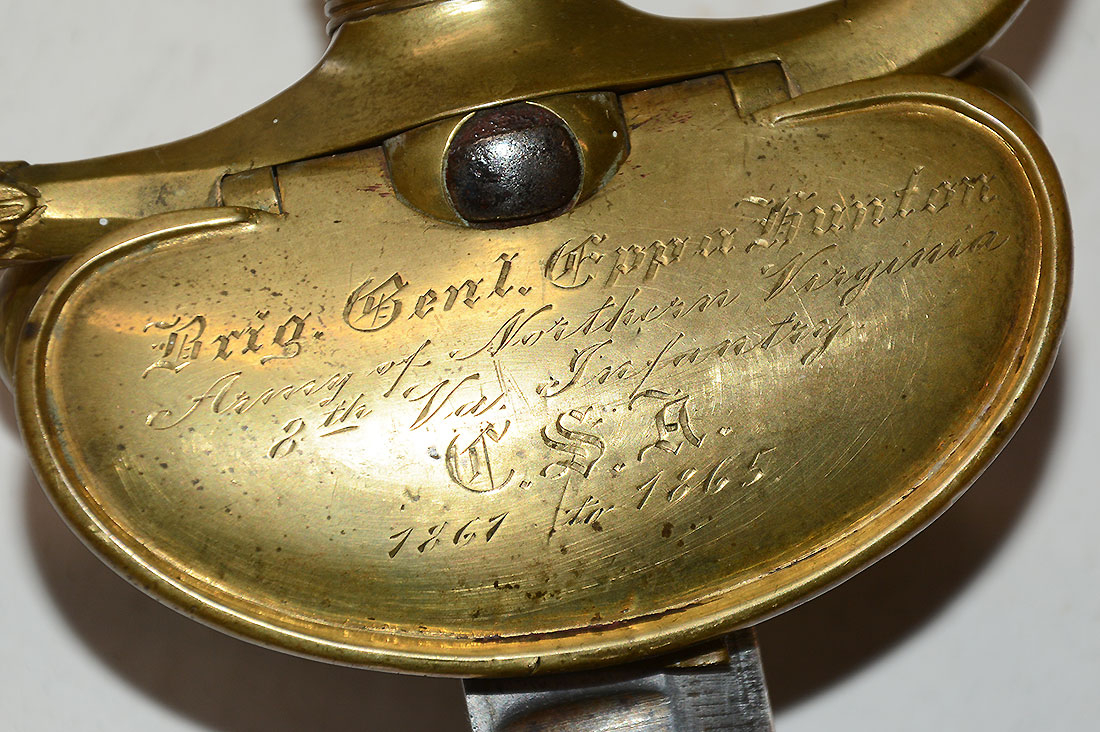 Brig. Genl. Eppa Hunton
Army of Northern Virginia
8th Va. Infantry.
C.S.A.
1861 to 1865.